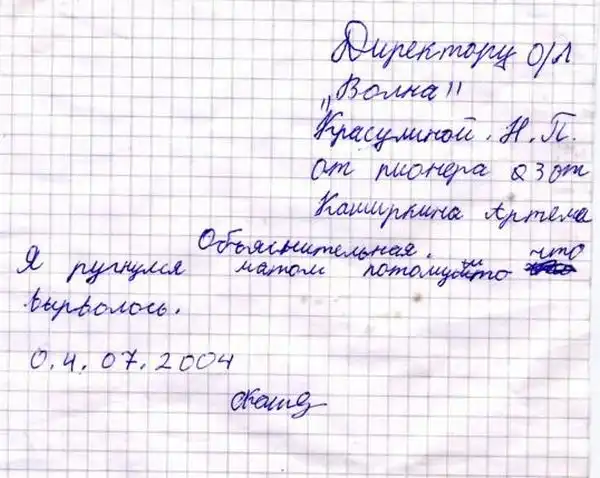 Директору О/Л
"Волна"
Красулиной. Н. П.
от пионера 23 от
Каширкина Артёма
Объяснительная.
Я ругнулся матом потому что
вырволось.
0.4.07.2004